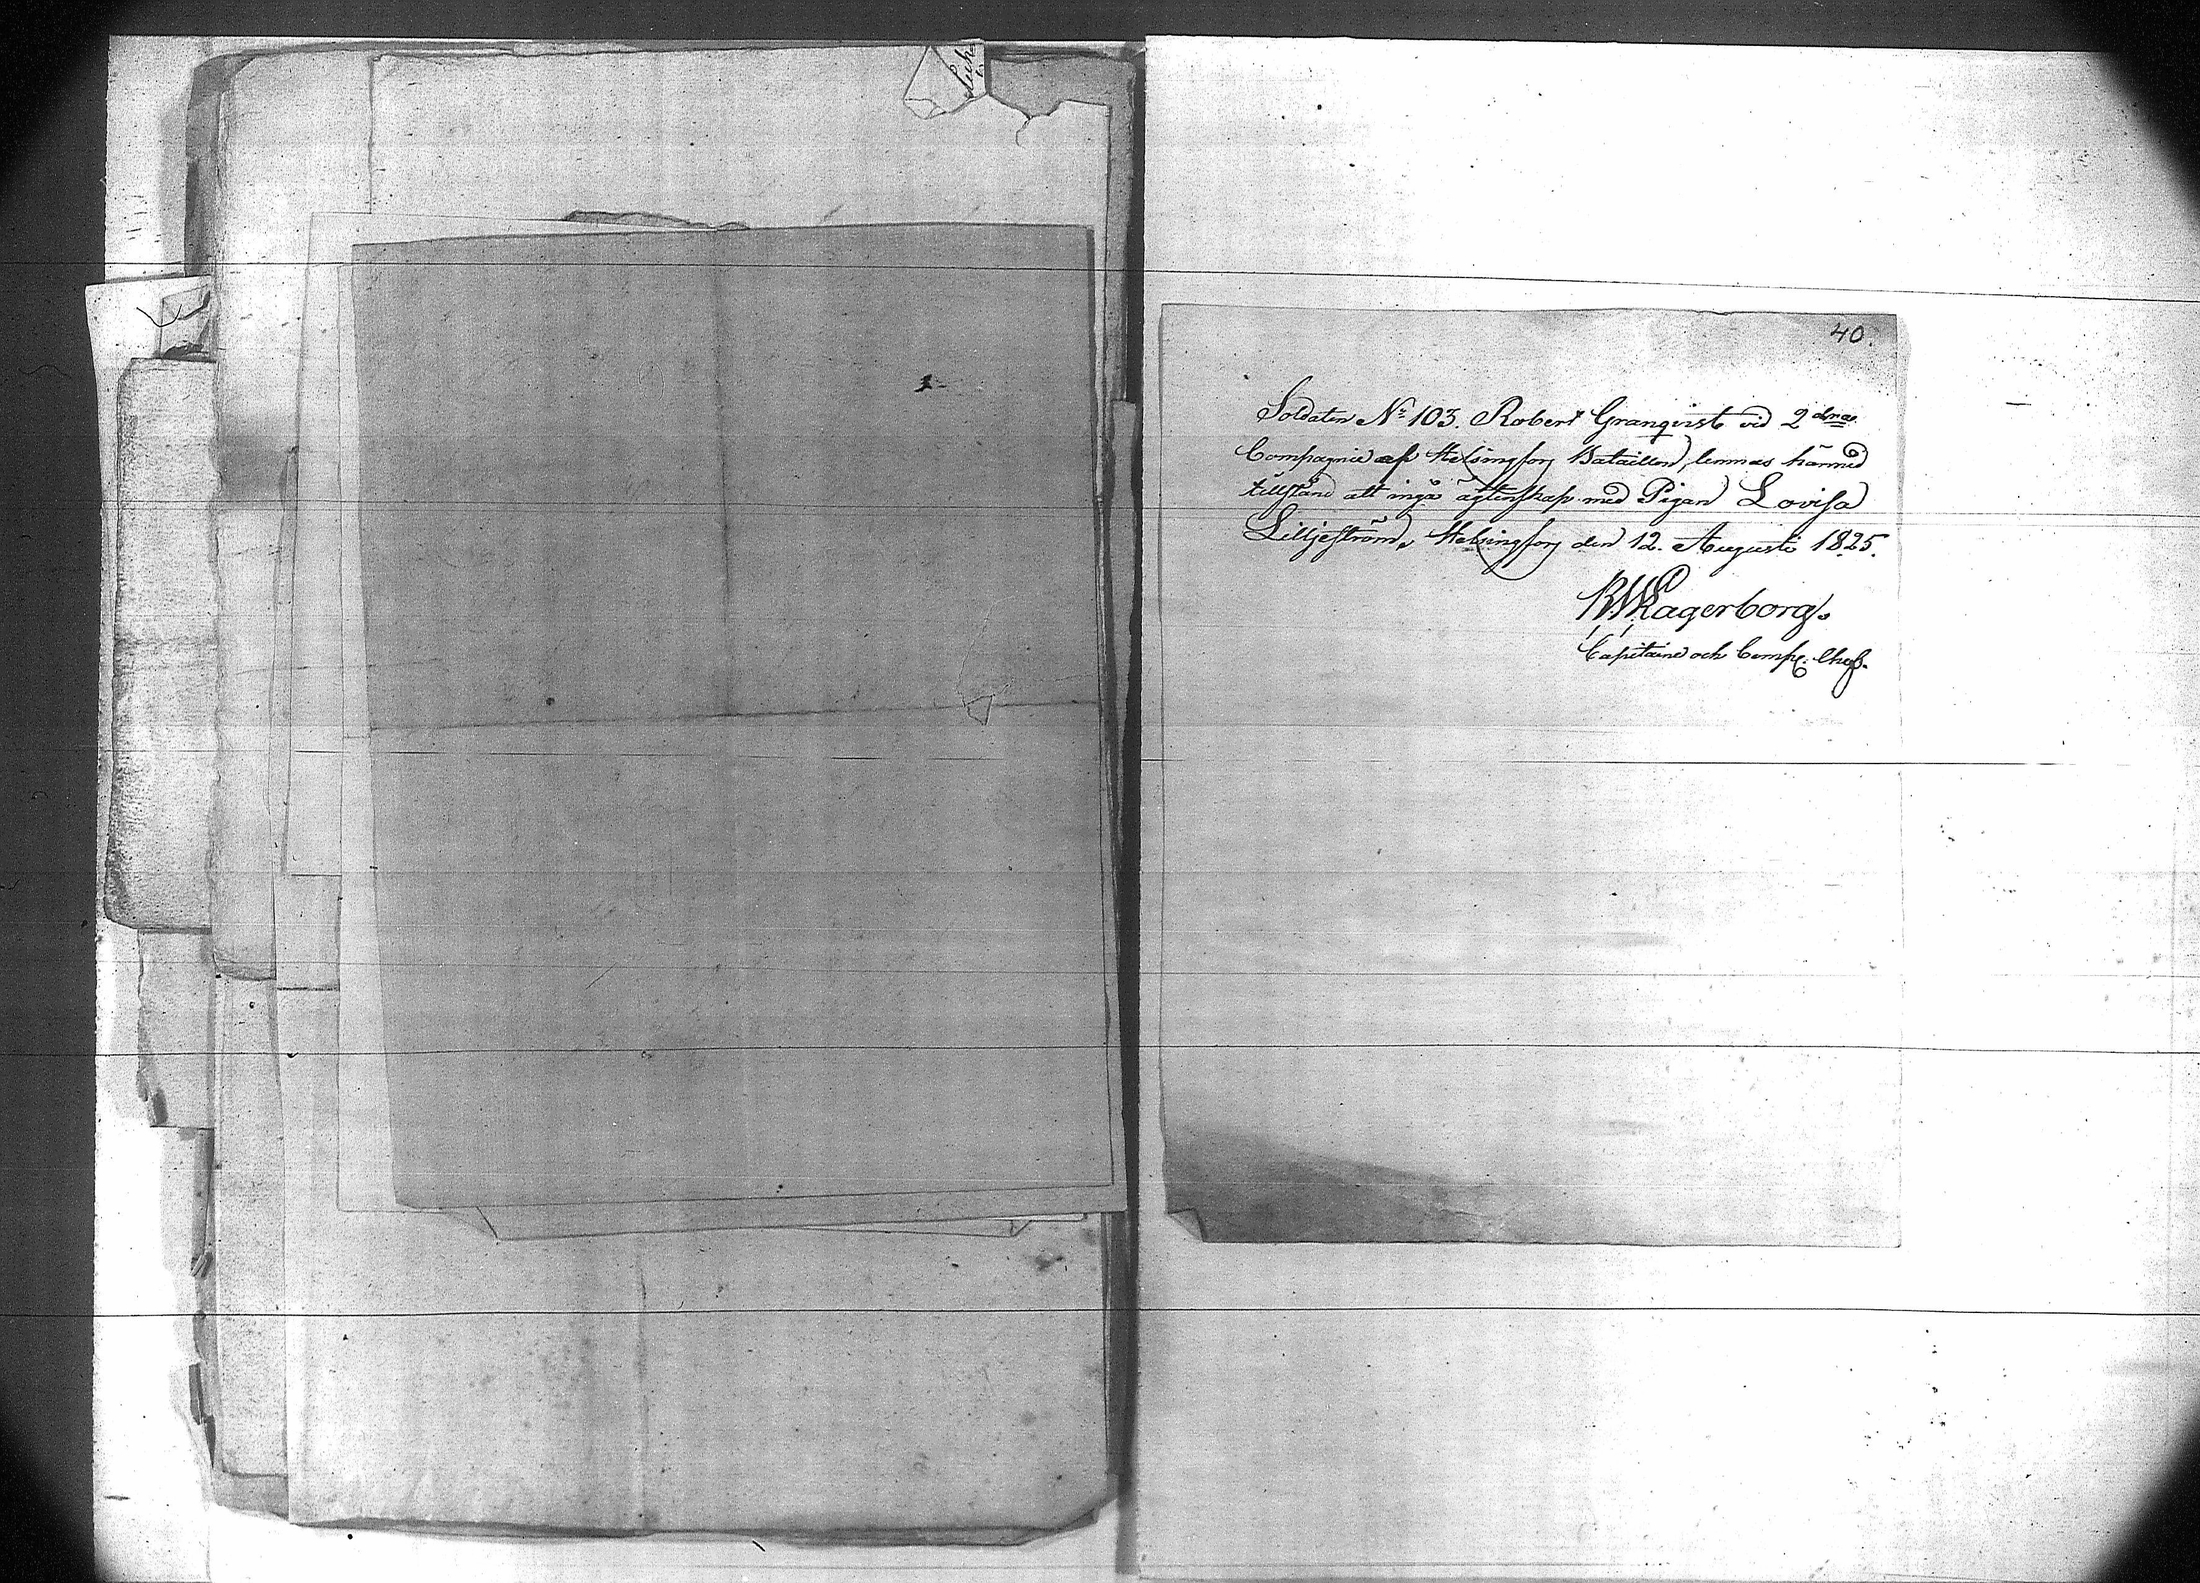 40.
Soldaten No 103. Robert Granqvist vid 2dra
Compagnie af Helsingfors Bataillon, lemnas härmed
tillstånd att ingå ägtenskap med Pigan Lovisa
Lilljeström, Helsingfors den 12. Augusti 1825.
Lagerborg.
Capitaine och Comp. Chef.